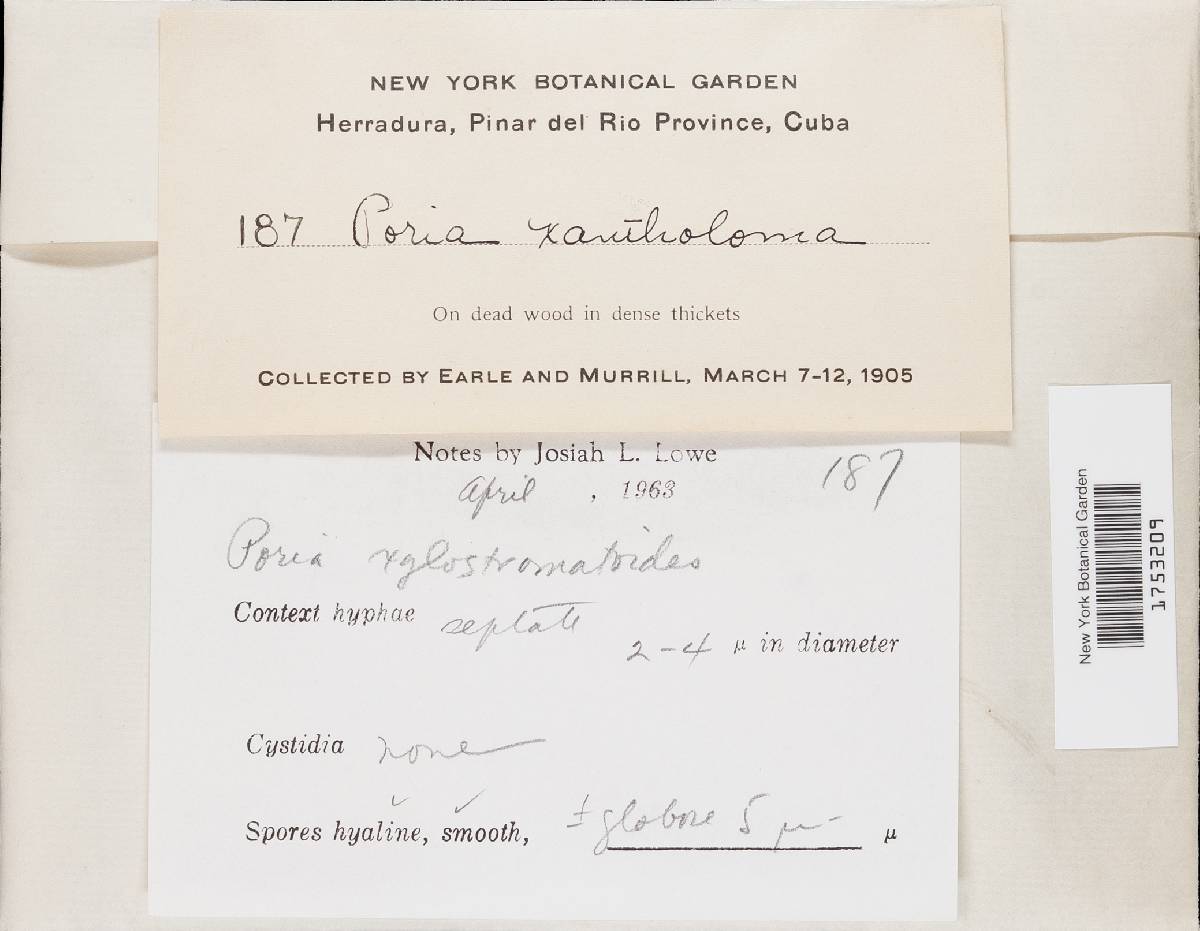 NEW YORK BOTANICAL GARDEN
Herradura, Pinar del Rio Province, Cuba
187 Poria xantholoma
On dead wood in dense thickets
COLLECTED BY EARLE AND MURRILL, MARCH 7-12, 1905
Notes by Josiah L. Lowe
187
April , 1963
Poria xylostromatoides
Context hyphae septate
2-4 μ in diameter
Cystidia none
Spores hyaline, smooth, ± globose 5 μ μ
New York Botanical Garden
1753209